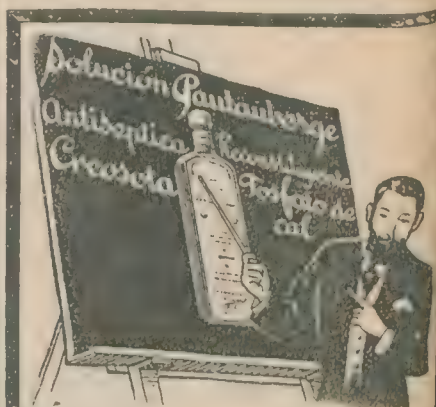 Solución Pautauberge
Antiséptica Reconstituyente
Creosota Fosfato de
cal